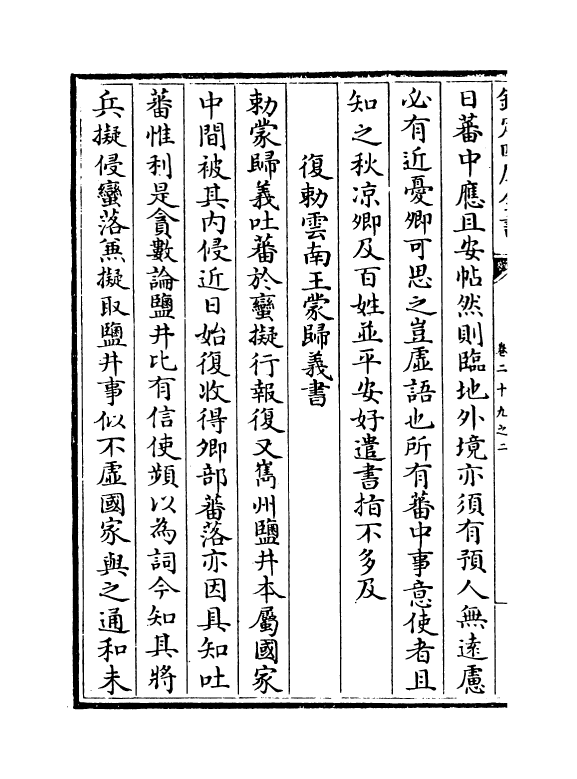 欽定四庫全書
卷二十九之二
日蕃中應且安帖然則臨地外境亦須有預人無遠慮
必有近憂卿可思之豈虛語也所有蕃中事意使者且
知之秋凉卿及百姓並平安好遣書指不多及
復勅雲南王蒙歸義書
勅蒙歸義吐蕃於蠻擬行報復又嶲州鹽井本屬國家
中間被其内侵近日始復收得卿部蕃落亦因具知吐
蕃惟利是貪數論鹽井比有信使頻以為詞今知其將
兵擬侵蠻落兼擬取鹽井事似不虛國家與之通和未